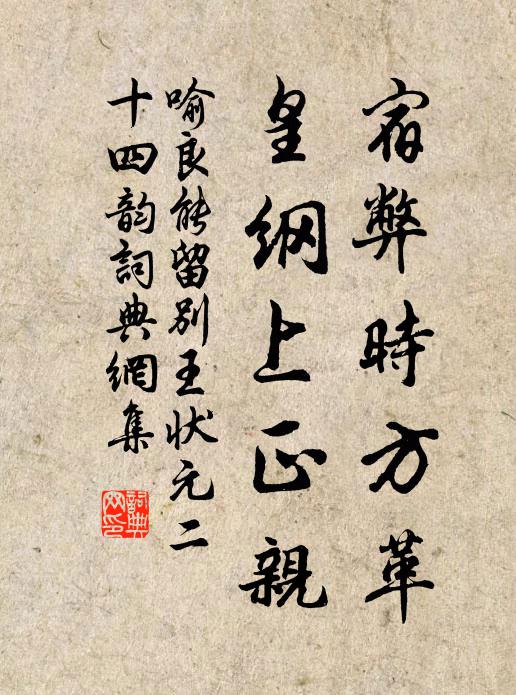 宿弊時方革
皇綱上正親
喻良能留别王状元二
十四韵詞典網集
詞典网印